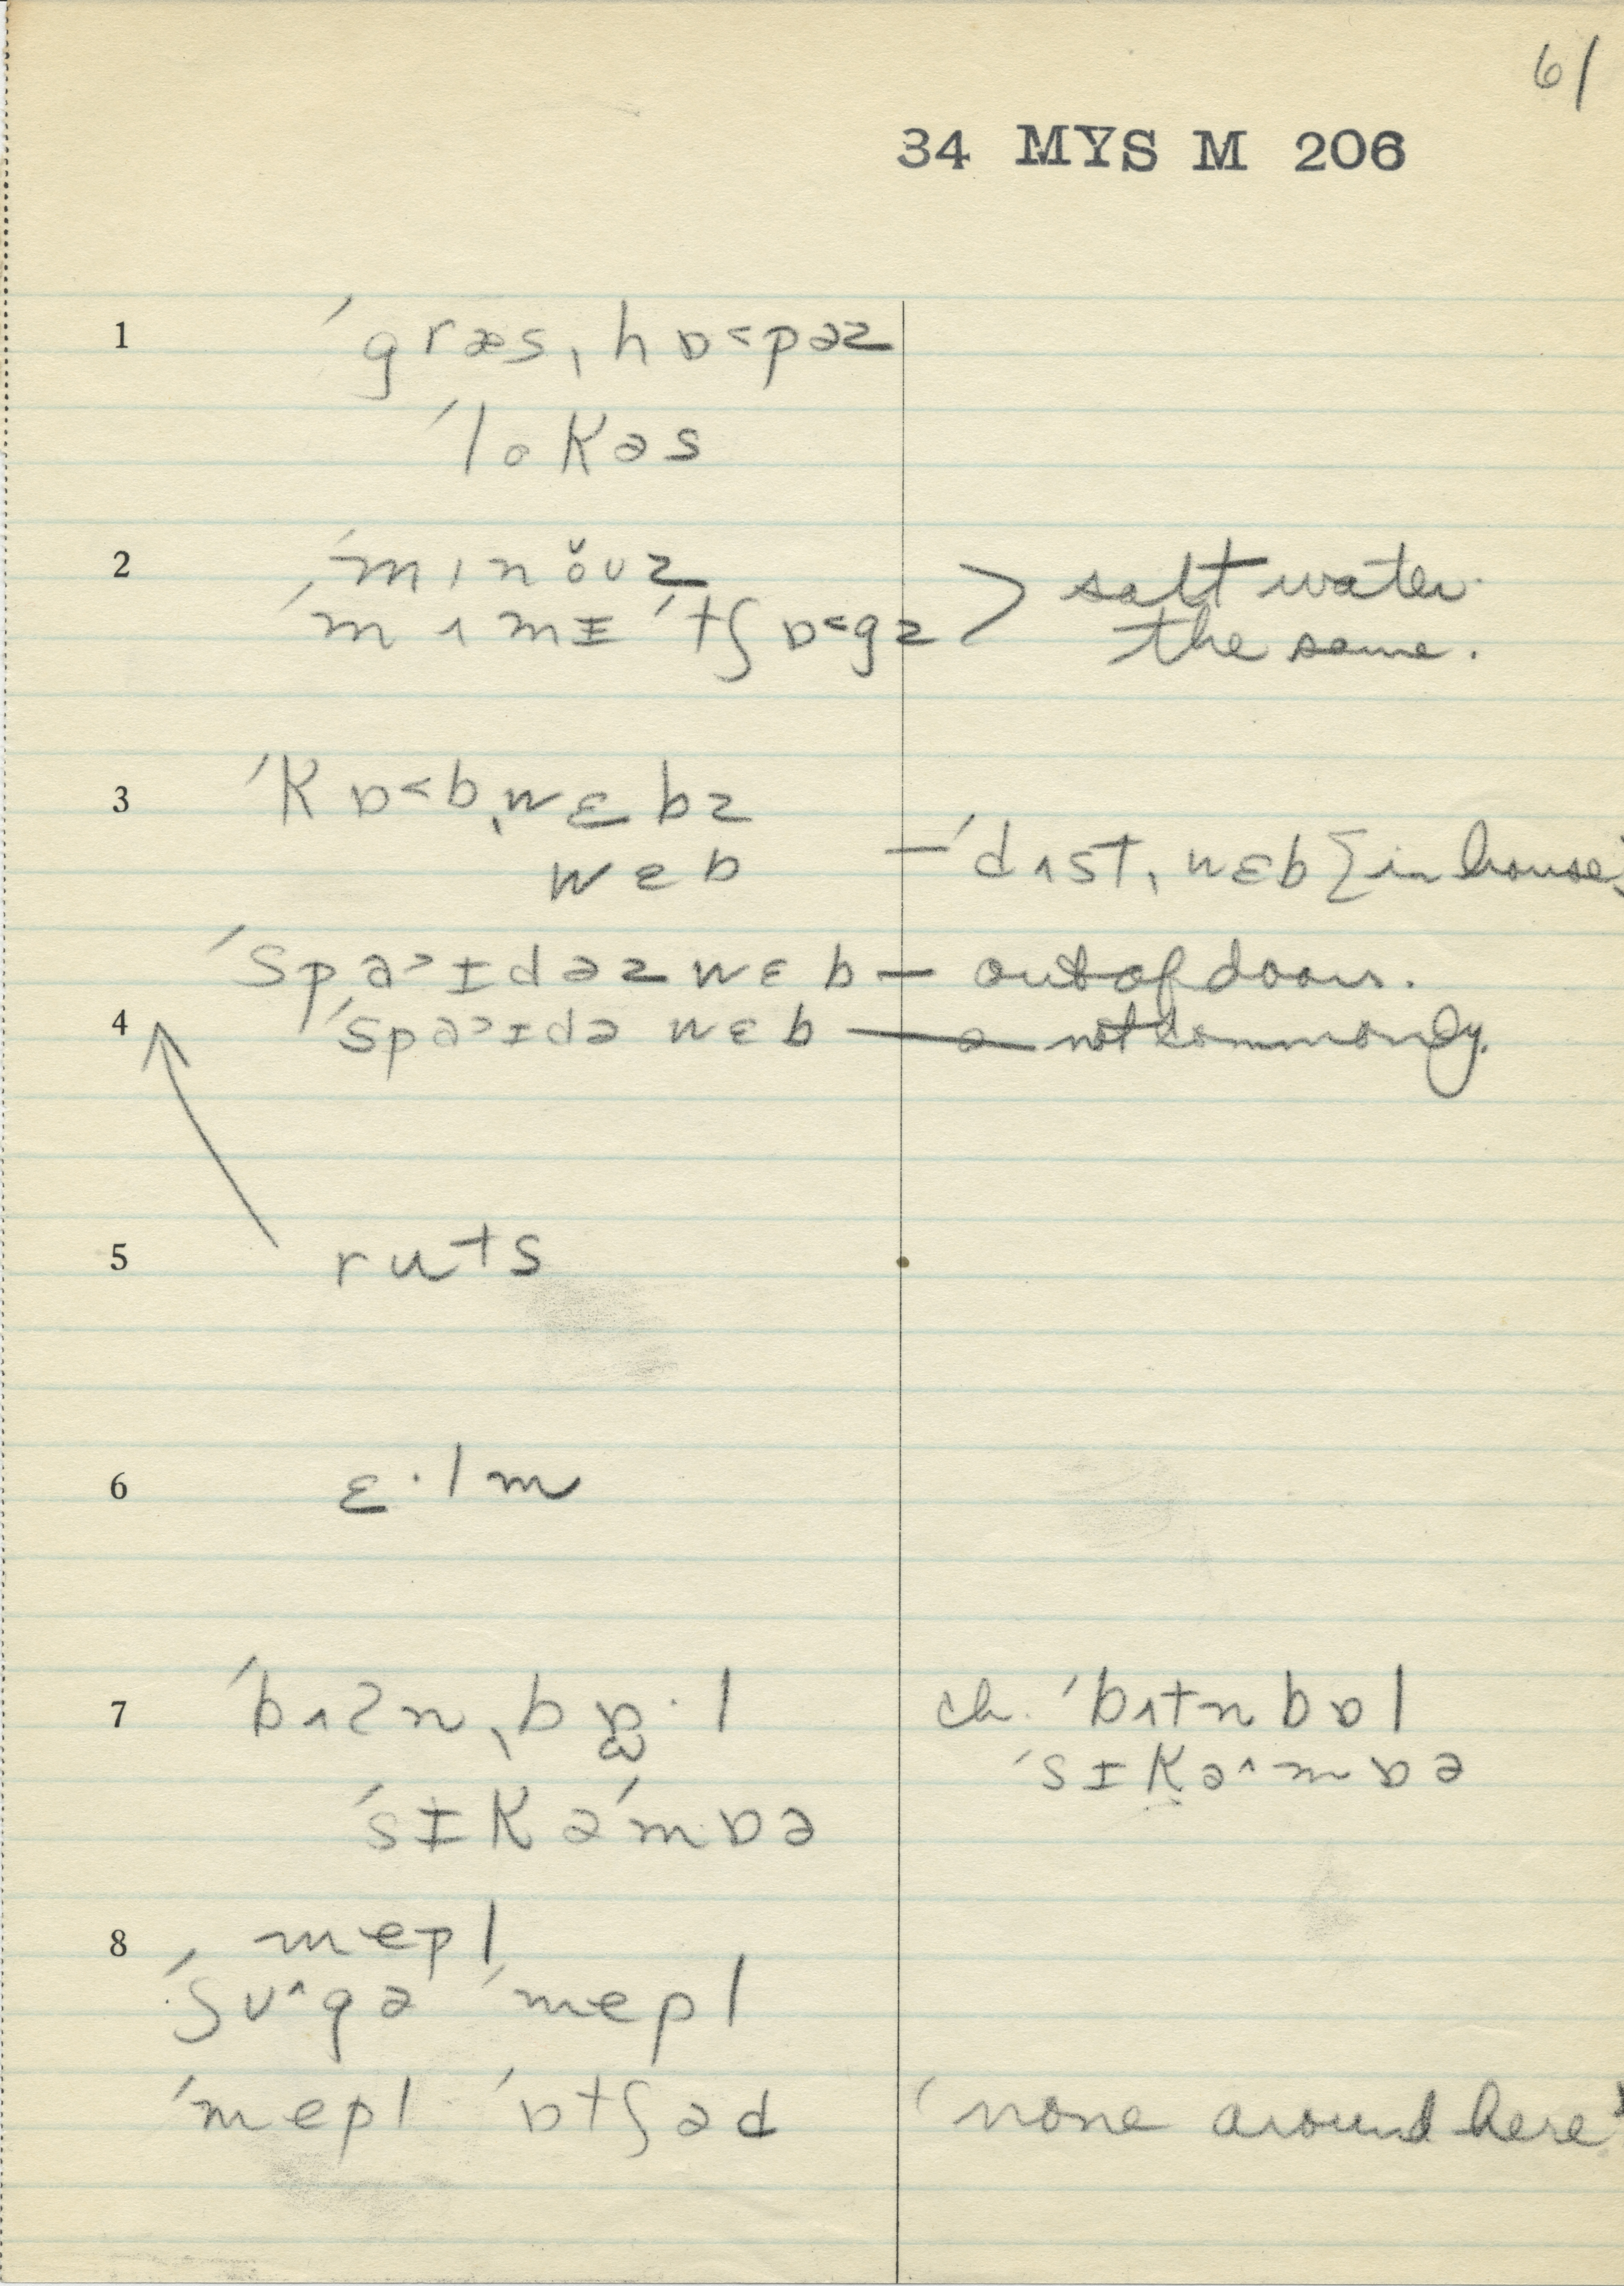 61
34 MYS M 206
1 ´græs͵hɒ˂pəz
´lokəs
2 ´mɪnŏʊz
´mʌmɪ ´tʃɒ˂gz > salt water
the same.
3 ´kɒ˂b͵wɛbz
wɛb — ´dʌst͵wɛb [in house]
´spa˃ɪdəz wɛb — out of doors.
4 ´spa˃ɪdə wɛb — not commonly.
5 ruts
6 ɛ·lm
7 ´bʌʔn͵bɒ̫·l ch. ´bʌtn bɒl
´sɪkə´mɒə ´sɪkə^mɒə
8 mepl
´ʃʊ^gə ´mepl
´mepl ´ɒtʃəd ‘none around here’